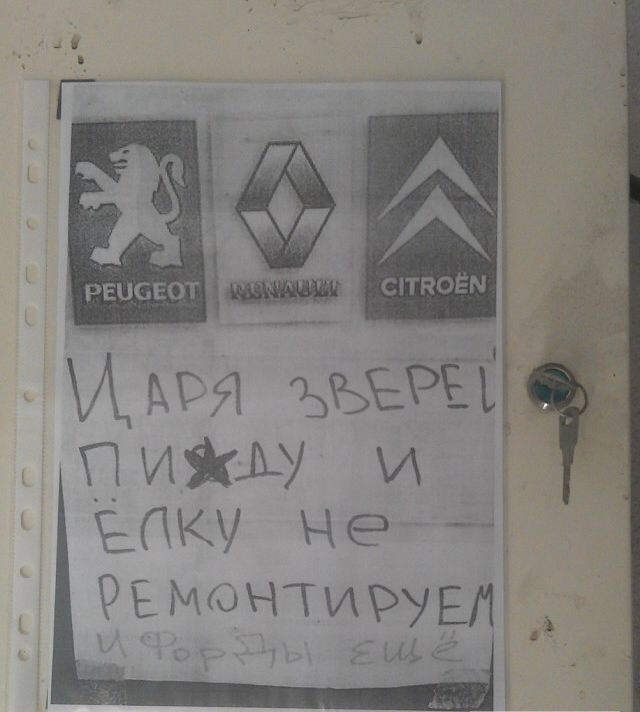 PEUGEOT RENAULT CITROËN
ЦАРЯ ЗВЕРЕЙ
ПИ★ДУ И
ЁЛКУ НЕ
РЕМОНТИРУЕМ
И ФОРДЫ ЕЩЁ